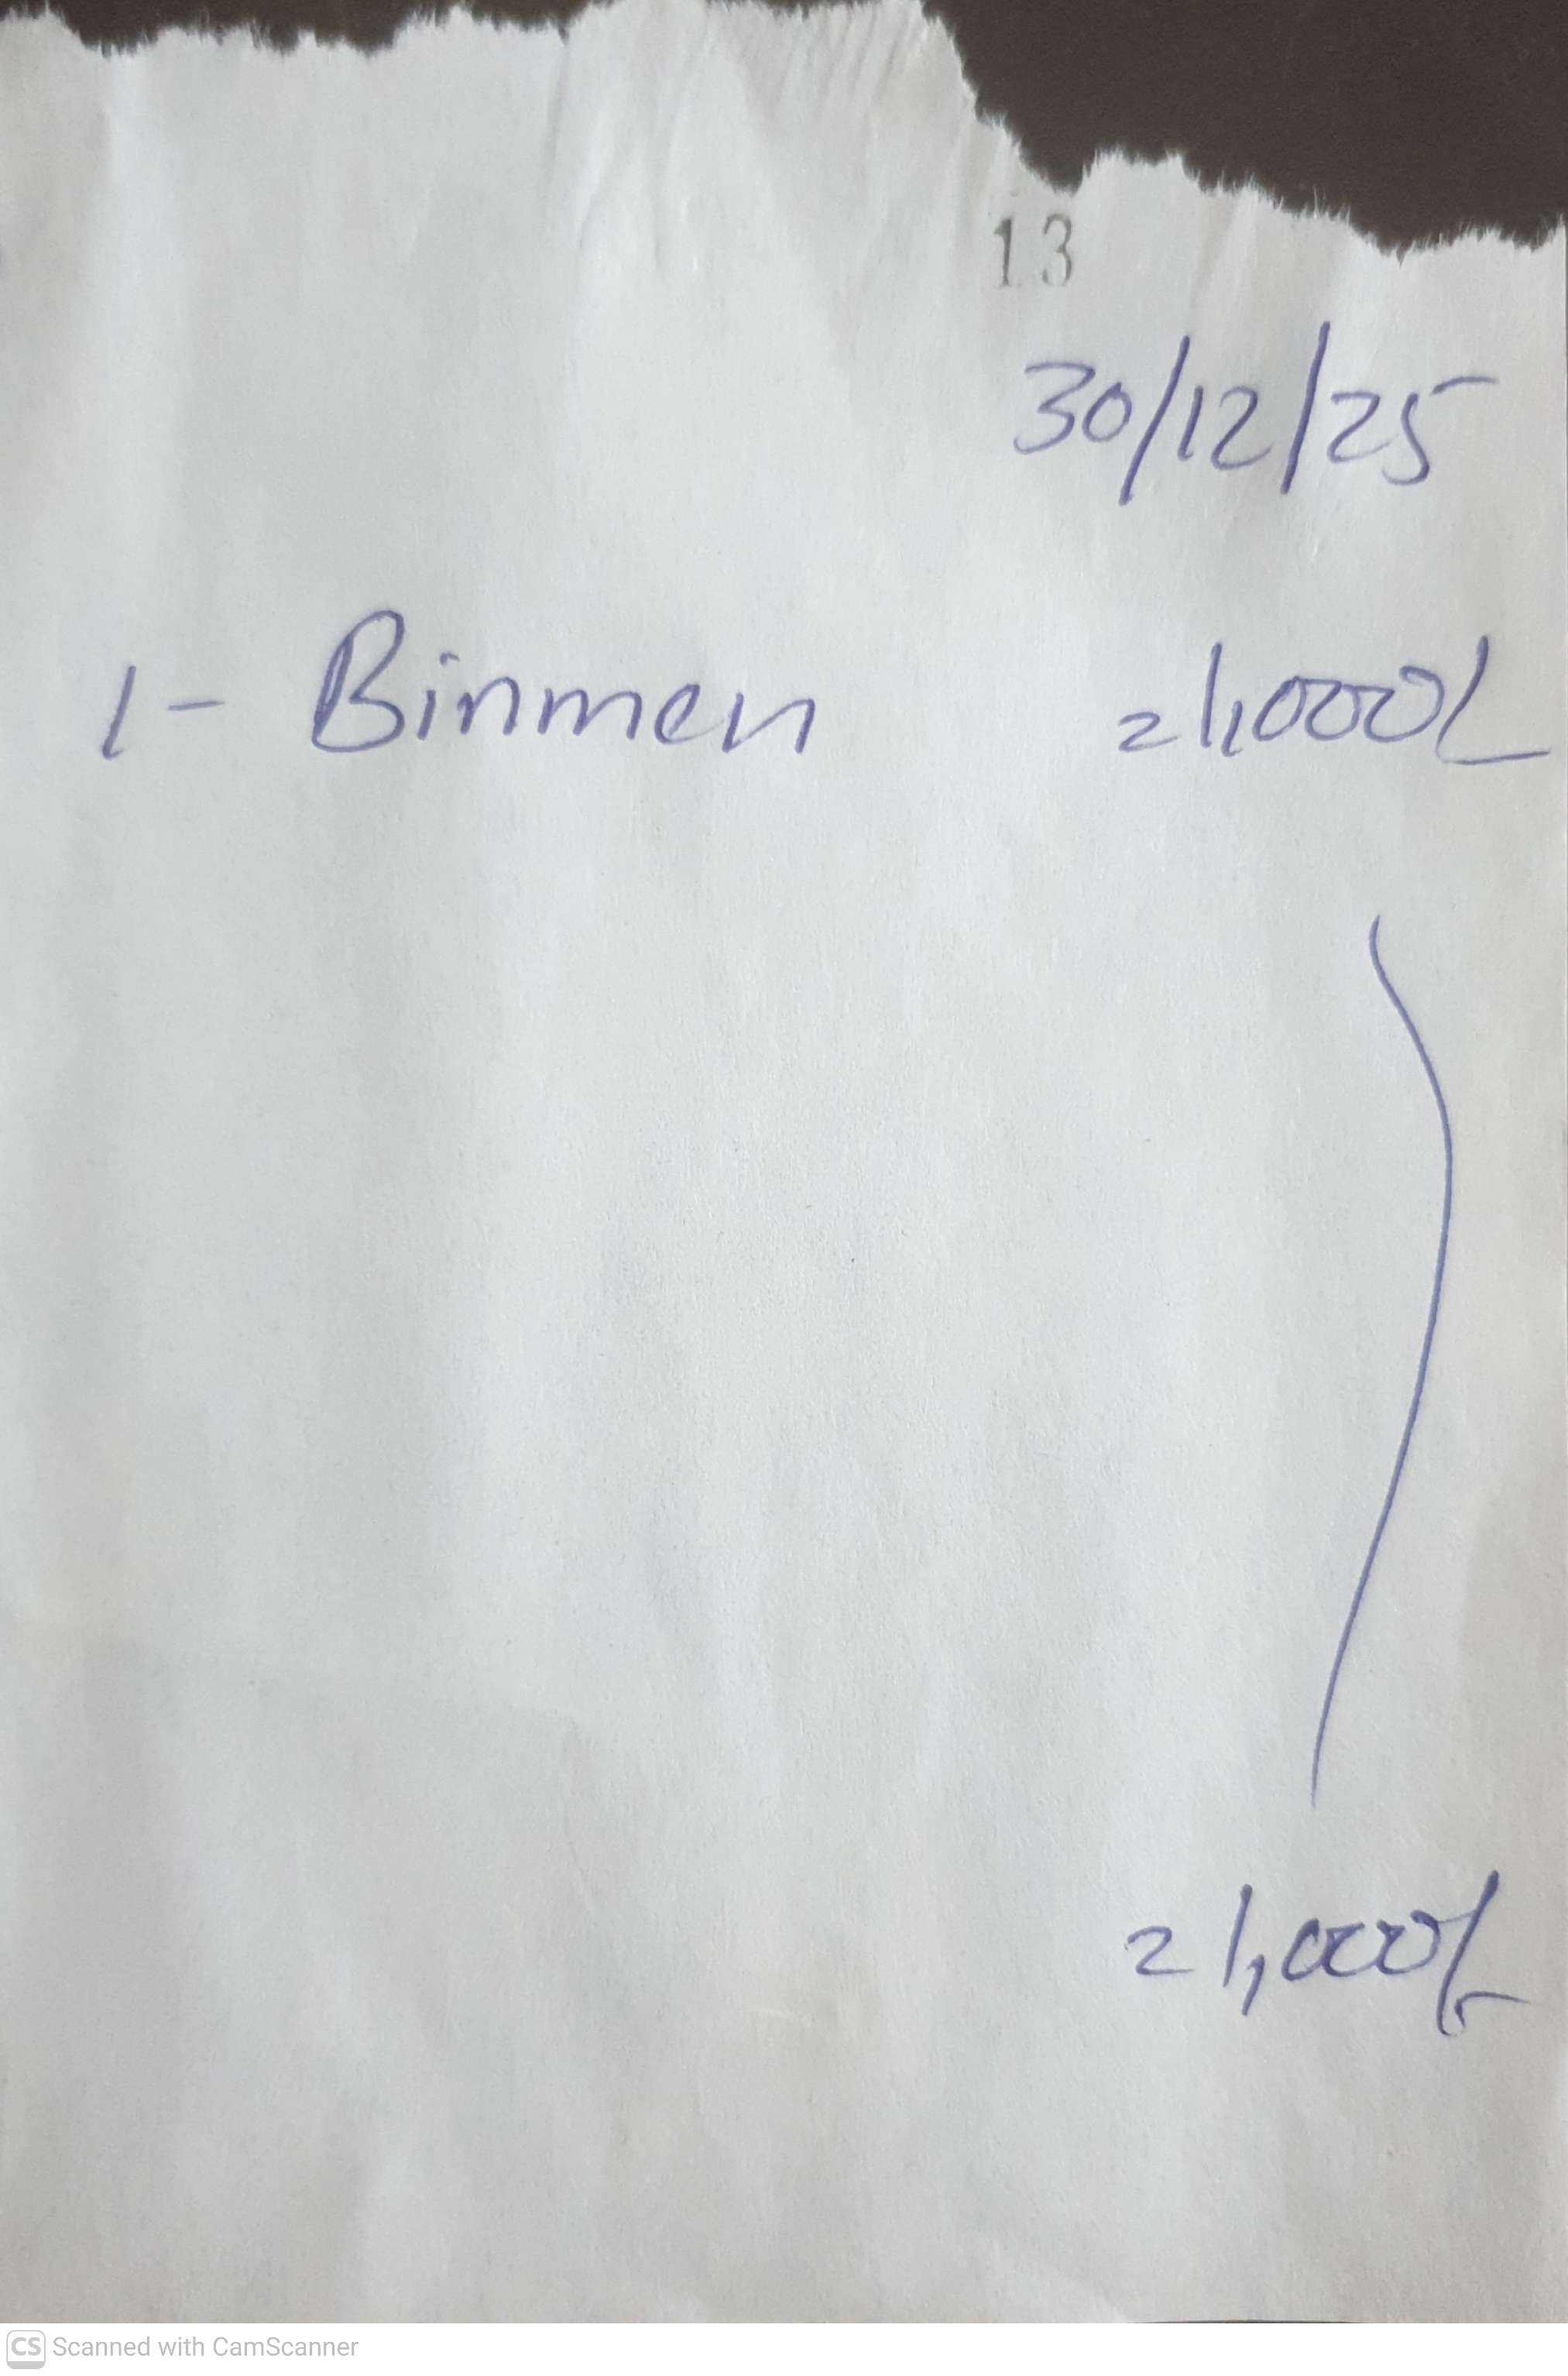 13
30/12/25
1- Binmen =1,000/-
=1,000/-
CS Scanned with CamScanner